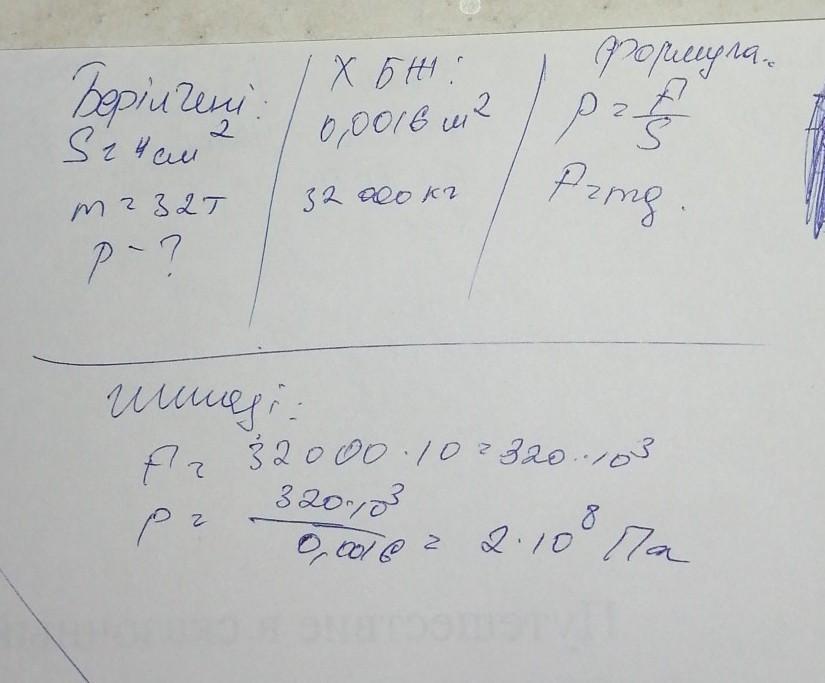 Берілгені:
S = 4 см²
m = 32 т
p - ?
ХБЖ:
0,0016 м²
32 000 кг
Формула.
p = F/S
F = mg.
Шешуі:
F = 32000 · 10 = 320 · 10³
p = 320 · 10³ / 0,0016 = 2 · 10⁸ Па